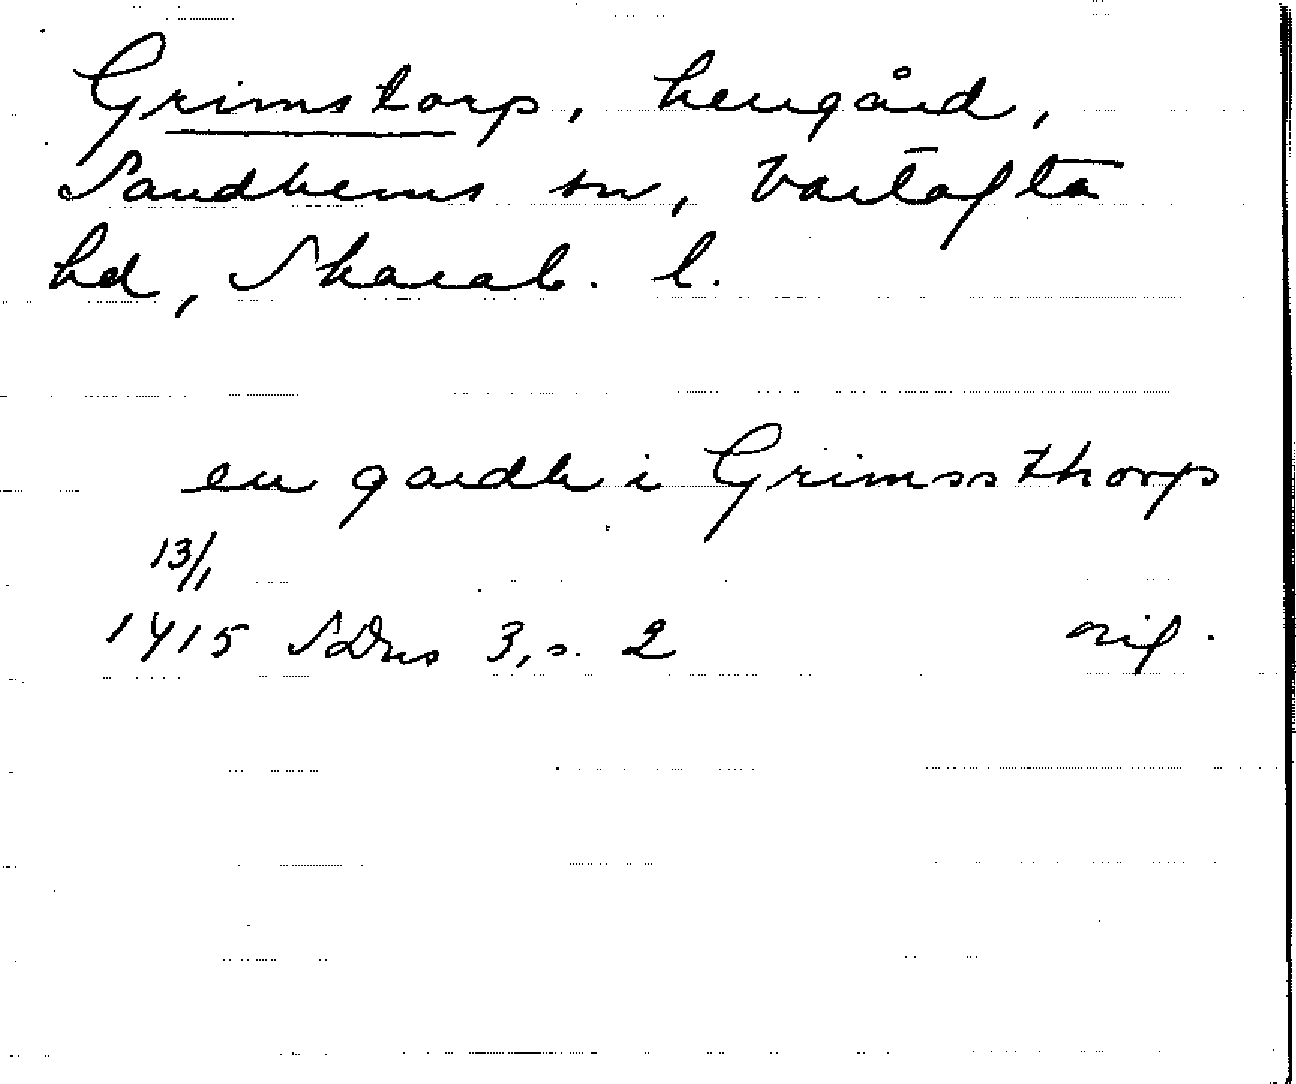 Grimstorp, herrgård,
Sandhems sn, Vartofta
hd, Skarab. l.
en gardh i Grimssthorp
13/1
1415 SDns 3, s. 2 orig.